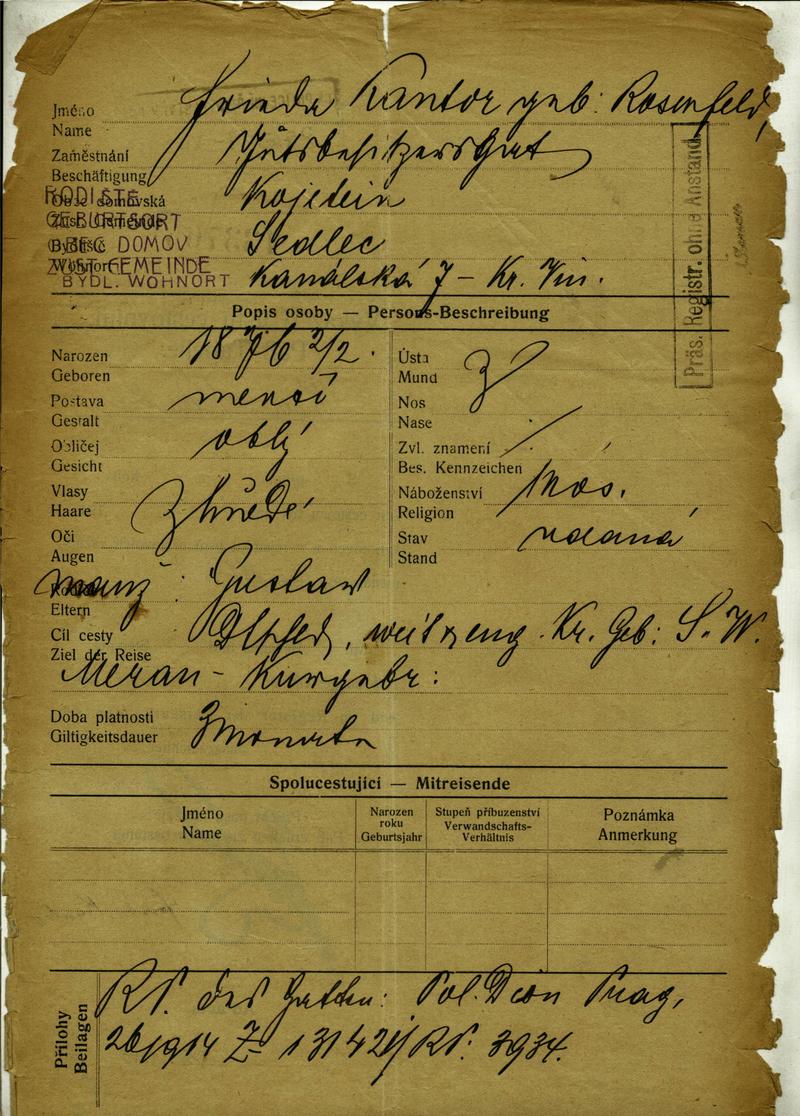 Jméno
Name
Frieda Kantor geb. Rosenfeld,
Zaměstnání
Beschäftigung
Gutsbesitzersgat
RODIŠTĚ
GEBURTSORT
Kojetein
OBEC DOMOV
ZUST. GEMEINDE
Sedlec
BYDL. WOHNORT
Kanálská 7 - Kr. Vin.
Präs. Registr. ohne Anstand
Popis osoby — Persons-Beschreibung
Narozen
Geboren
1876 2/2.
Postava
Gestalt
menší
Obličej
Gesicht
oblý
Vlasy
Haare
Oči
Augen
hnědé
Ústa
Mund
Nos
Nase
Zvl. znamení
Bes. Kennzeichen
Náboženství
Religion
mos.
Stav
Stand
vdaná
manž: Gustav
Eltern
Cíl cesty
Ziel der Reise
Dtschld, Kr. Geb: S. W.
Meran - Kurgebr:
Doba platnosti
Giltigkeitsdauer
3 Monate
Spolucestující — Mitreisende
Jméno
Name
Narozen roku
Geburtsjahr
Stupeň příbuzenství
Verwandschafts-Verhältnis
Poznámka
Anmerkung
Přílohy
Beilagen
RP. des Gatten: Pol. Dion Prag,
26/1914 Z 13142 RP. 3934.